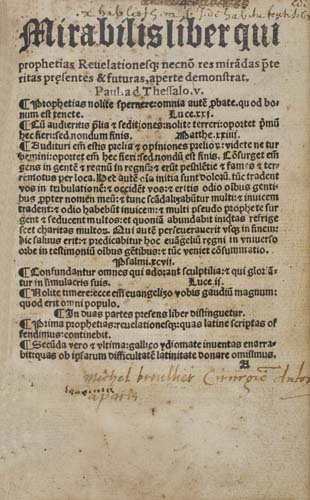 Mirabilis liber qui
prophetias Reuelationesq; necnõ res mirãdas p̃te
ritas presentes & futuras, aperte demonstrat.
Paul. ad Thessalo. v.
¶ Prophetias nolite spernere: omnia autẽ ꝓbate. quod bo
num est tenete. Luce. xxj.
¶ Cũ audieritis p̃lia & seditiones: nolite terreri: oportet p̃mũ
hec fieri: sed nondum finis. Matthe. xxiiij.
¶ Audituri em̃ estis prelia & opiniones prelioꝝ: videte ne tur
bemini: oportet em̃ hec fieri: sed nondũ est finis. Cõsurget em̃
gens in gentẽ & regnũ in regnũ: & erũt pestilẽtie & fames & ter
remotus per loca. Hec autẽ oĩa initia sunt doloꝝ. tũc tradent
vos in tribulationẽ: & occidẽt vos: & eritis odio oĩbus genti
bus ꝓpter nomẽ meũ: & tunc scãdalizabũtur multi: & inuicem
tradent: & odio habebũt inuicem: & multi pseudo prophete sur
gent & seducent multos: et quoniã abundabit iniq̃tas refrige
scet charitas multoꝝ. Qui autẽ perseuerauerit vsq; in finem:
hic saluus erit: et predicabitur hoc euãgeliũ regni in vniuerso
orbe in testimoniũ oĩbus gẽtibus: et tũc veniet cõsummatio.
Psalmi. xcvij.
¶ Confundantur omnes qui adorant sculptilia: et qui gloriã
tur in simulacris suis. Luce. ij.
¶ Nolite timere: ecce em̃ euangelizo vobis gaudiũ magnum:
quod erit omni populo.
¶ In duas partes presens liber distinguetur.
¶ Prima prophetias: reuelationesq; quas latine scriptas of
fendimus: continebit.
¶ Secũda vero & vltima: gallico ydiomate inuentas enarra
bit: quas ob ipsarum difficultatẽ latinitate donare omisimus.
A
michel
a paris